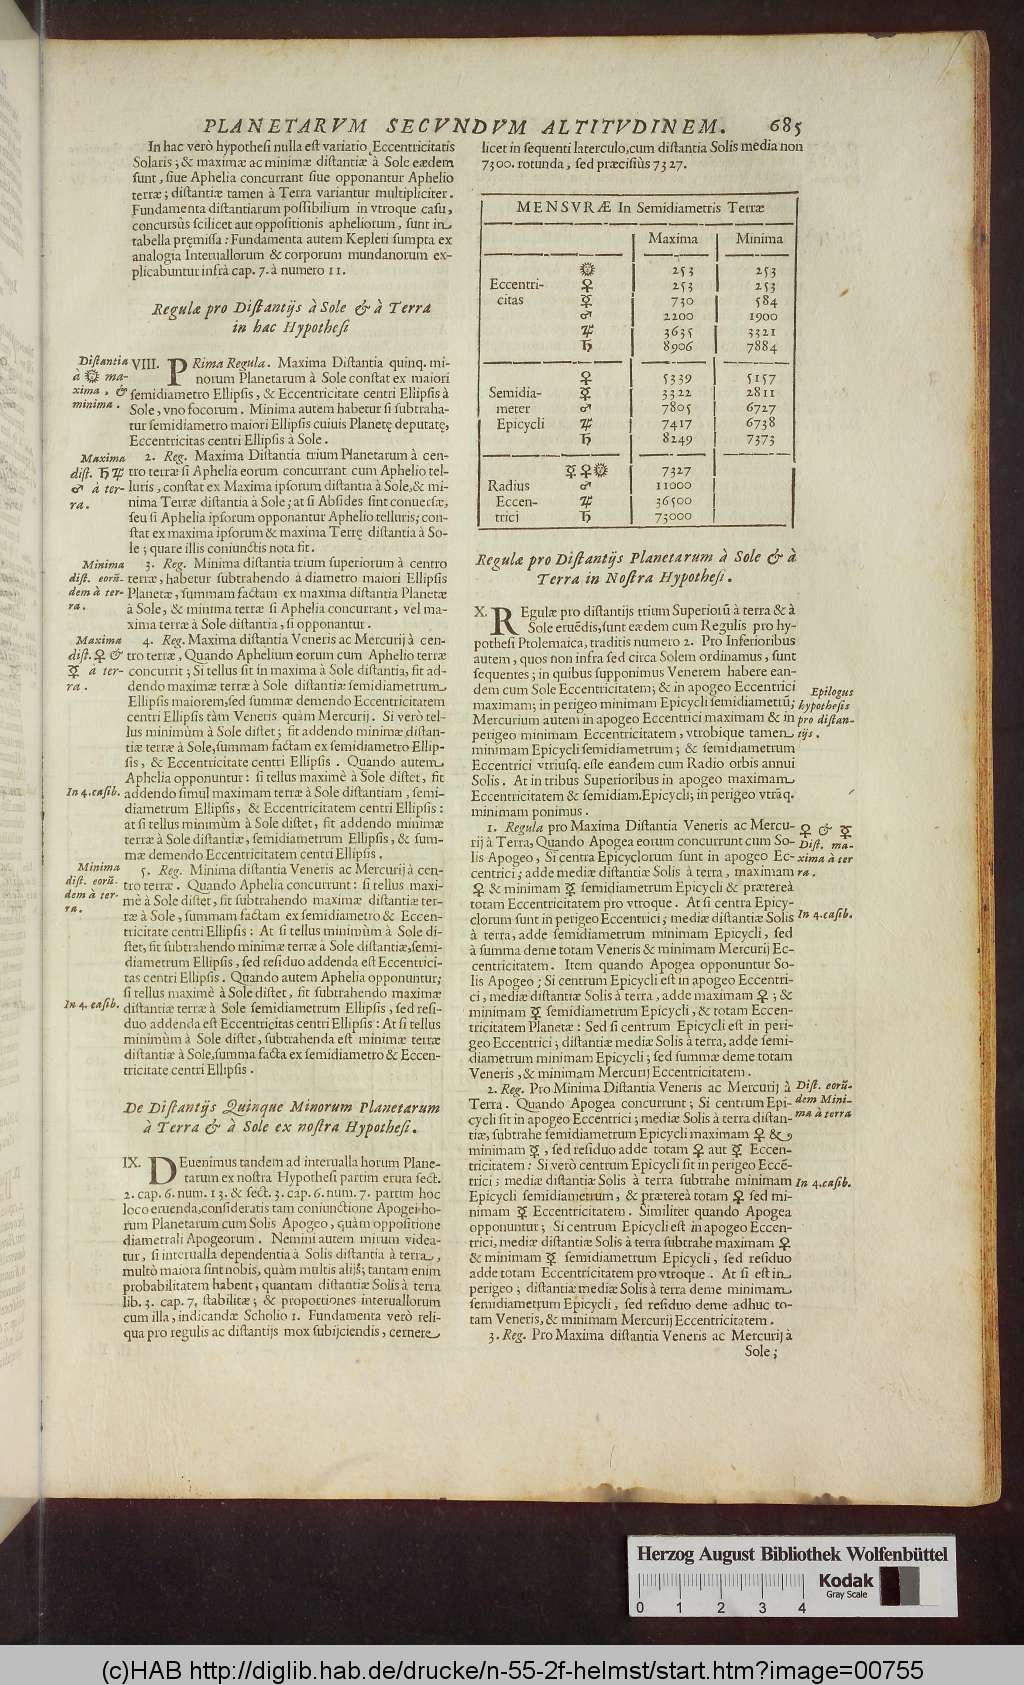 PLANETARVM SECVNDVM ALTITVDINEM. 685
In hac verò hypothesi nulla est variatio Eccentricitatis
Solaris; & maximæ ac minimæ distantiæ à Sole eædem
sunt, siue Aphelia concurrant siue opponantur Aphelio
terræ; distantiæ tamen à Terra variantur multipliciter.
Fundamenta distantiarum possibilium in vtroque casu,
concursùs scilicet aut oppositionis apheliorum, sunt in
tabella pręmissa: Fundamenta autem Kepleri sumpta ex
analogia Interuallorum & corporum mundanorum ex-
plicabuntur infrà cap. 7. à numero 11.
Regulæ pro Distantijs à Sole & à Terra
in hac Hypothesi
Distantia
à ☼ ma-
xima, &
minima.
VIII. PRima Regula. Maxima Distantia quinq. mi-
norum Planetarum à Sole constat ex maiori
semidiametro Ellipsis, & Eccentricitate centri Ellipsis à
Sole, vno focorum. Minima autem habetur si subtraha-
tur semidiametro maiori Ellipsis cuiuis Planetę deputatę,
Eccentricitas centri Ellipsis à Sole.
Maxima
dist. ♄ ♃
♂ à ter-
ra.
2. Reg. Maxima Distantia trium Planetarum à cen-
tro terræ si Aphelia eorum concurrant cum Aphelio tel-
luris, constat ex Maxima ipsorum distantia à Sole, & mi-
nima Terræ distantia à Sole; at si Absides sint conuersæ,
seu si Aphelia ipsorum opponantur Aphelio telluris; con-
stat ex maxima ipsorum & maxima Terrę distantia à So-
le; quare illis coniunctis nota fit.
Minima
dist. eorū-
dem à ter-
ra.
3. Reg. Minima distantia trium superiorum à centro
terræ, habetur subtrahendo à diametro maiori Ellipsis
Planetæ, summam factam ex maxima distantia Planetæ
à Sole, & minima terræ si Aphelia concurrant, vel ma-
xima terræ à Sole distantia, si opponantur.
Maxima
dist. ♀ &
☿ à ter-
ra.
4. Reg. Maxima distantia Veneris ac Mercurij à cen-
tro terræ, Quando Aphelium eorum cum Aphelio terræ
concurrit; Si tellus sit in maxima à Sole distantia, fit ad-
dendo maximæ terræ à Sole distantiæ semidiametrum
Ellipsis maiorem, sed summæ demendo Eccentricitatem
centri Ellipsis tàm Veneris quàm Mercurij. Si verò tel-
lus minimùm à Sole distet; fit addendo minimæ distan-
tiæ terræ à Sole, summam factam ex semidiametro Ellip-
sis, & Eccentricitate centri Ellipsis. Quando autem
Aphelia opponuntur: si tellus maximè à Sole distet, fit
In 4. casib.
addendo simul maximam terræ à Sole distantiam, semi-
diametrum Ellipsis, & Eccentricitatem centri Ellipsis:
at si tellus minimùm à Sole distet, fit addendo minimæ
terræ à Sole distantiæ, semidiametrum Ellipsis, & sum-
mæ demendo Eccentricitatem centri Ellipsis.
Minima
dist. eorū-
dem à ter-
ra.
5. Reg. Minima distantia Veneris ac Mercurij à cen-
tro terræ. Quando Aphelia concurrunt: si tellus maxi-
mè à Sole distet, fit subtrahendo maximæ distantiæ ter-
ræ à Sole, summam factam ex semidiametro & Eccen-
tricitate centri Ellipsis: At si tellus minimùm à Sole di-
stet, fit subtrahendo minimæ terræ à Sole distantiæ, semi-
diametrum Ellipsis, sed residuo addenda est Eccentrici-
tas centri Ellipsis. Quando autem Aphelia opponuntur;
si tellus maximè à Sole distet, fit subtrahendo maximæ
In 4. casib.
distantiæ terræ à Sole semidiametrum Ellipsis, sed resi-
duo addenda est Eccentricitas centri Ellipsis: At si tellus
minimùm à Sole distet, subtrahenda est minimæ terræ
distantiæ à Sole, summa facta ex semidiametro & Eccen-
tricitate centri Ellipsis.
De Distantijs Quinque Minorum Planetarum
à Terra & à Sole ex nostra Hypothesi.
IX. DEuenimus tandem ad interualla horum Plane-
tarum ex nostra Hypothesi partim eruta sect.
2. cap. 6. num. 13. & sect. 3. cap. 6. num. 7. partim hoc
loco eruenda, consideratis tam coniunctione Apogei ho-
rum Planetarum cum Solis Apogeo, quàm oppositione
diametrali Apogeorum. Nemini autem mirum videa-
tur, si interualla dependentia à Solis distantia à terra,
multò maiora sint nobis, quàm multis alijs; tantam enim
probabilitatem habent, quantam distantiæ Solis à terra
lib. 3. cap. 7. stabilitæ; & proportiones interuallorum
cum illa, indicandæ Scholio 1. Fundamenta verò reli-
qua pro regulis ac distantijs mox subijciendis, cernere
licet in sequenti laterculo, cum distantia Solis media non
7300. rotunda, sed præcisiùs 7327.
MENSVRÆ In Semidiametris Terræ
Maxima | Minima
☼ 253 | 253
Eccentri- ♀ 253 | 253
citas ☿ 730 | 584
♂ 2200 | 1900
♃ 3635 | 3321
♄ 8906 | 7884
♀ 5339 | 5157
Semidia- ☿ 3322 | 2811
meter ♂ 7805 | 6727
Epicycli ♃ 7417 | 6738
♄ 8249 | 7373
☿ ♀ ☼ 7327
Radius ♂ 11000
Eccen- ♃ 36500
trici ♄ 73000
Regulæ pro Distantijs Planetarum à Sole & à
Terra in Nostra Hypothesi.
X. REgulæ pro distantijs trium Superiorū à terra & à
Sole eruēdis, sunt eædem cum Regulis pro hy-
pothesi Ptolemaica, traditis numero 2. Pro Inferioribus
autem, quos non infra sed circa Solem ordinamus, sunt
sequentes; in quibus supponimus Venerem habere ean-
dem cum Sole Eccentricitatem; & in apogeo Eccentrici
maximam; in perigeo minimam Epicycli semidiametrū;
Mercurium autem in apogeo Eccentrici maximam & in
perigeo minimam Eccentricitatem, vtrobique tamen
minimam Epicycli semidiametrum; & semidiametrum
Eccentrici vtriusq. esse eandem cum Radio orbis annui
Solis. At in tribus Superioribus in apogeo maximam
Eccentricitatem & semidiam. Epicycli; in perigeo vtrāq.
minimam ponimus.
Epilogus
hypothesis
pro distan-
tijs.
1. Regula pro Maxima Distantia Veneris ac Mercu-
rij à Terra, Quando Apogea eorum concurrunt cum So-
lis Apogeo, Si centra Epicyclorum sunt in apogeo Ec-
centrici; adde mediæ distantiæ Solis à terra, maximam
♀ & minimam ☿ semidiametrum Epicycli & prætereà
totam Eccentricitatem pro vtroque. At si centra Epicy-
clorum sunt in perigeo Eccentrici; mediæ distantiæ Solis
à terra, adde semidiametrum minimam Epicycli, sed
à summa deme totam Veneris & minimam Mercurij Ec-
centricitatem. Item quando Apogea opponuntur So-
lis Apogeo; Si centrum Epicycli est in apogeo Eccentri-
ci, mediæ distantiæ Solis à terra, adde maximam ♀; &
minimam ☿ semidiametrum Epicycli, & totam Eccen-
tricitatem Planetæ: Sed si centrum Epicycli est in peri-
geo Eccentrici; distantiæ mediæ Solis à terra, adde semi-
diametrum minimam Epicycli; sed summæ deme totam
Veneris, & minimam Mercurij Eccentricitatem.
♀ & ☿
Dist. ma-
xima à ter
ra.
In 4. casib.
2. Reg. Pro Minima Distantia Veneris ac Mercurij à
Terra. Quando Apogea concurrunt; Si centrum Epi-
cycli sit in apogeo Eccentrici; mediæ Solis à terra distan-
tiæ, subtrahe semidiametrum Epicycli maximam ♀ &
minimam ☿, sed residuo adde totam ♀ aut ☿ Eccen-
tricitatem: Si verò centrum Epicycli sit in perigeo Eccē-
trici; mediæ distantiæ Solis à terra subtrahe minimam
Epicycli semidiametrum, & prætereà totam ♀ sed mi-
nimam ☿ Eccentricitatem. Similiter quando Apogea
opponuntur; Si centrum Epicycli est in apogeo Eccen-
trici, mediæ distantiæ Solis à terra subtrahe maximam ♀
& minimam ☿ semidiametrum Epicycli, sed residuo
adde totam Eccentricitatem pro vtroque. At si est in
perigeo; distantiæ mediæ Solis à terra deme minimam
semidiametrum Epicycli, sed residuo deme adhuc to-
tam Veneris, & minimam Mercurij Eccentricitatem.
Dist. eorū-
dem Mini-
ma à terra
In 4. casib.
3. Reg. Pro Maxima distantia Veneris ac Mercurij à
Sole;
Herzog August Bibliothek Wolfenbüttel
0 1 2 3 4
Kodak
Gray Scale
(c)HAB http://diglib.hab.de/drucke/n-55-2f-helmst/start.htm?image=00755